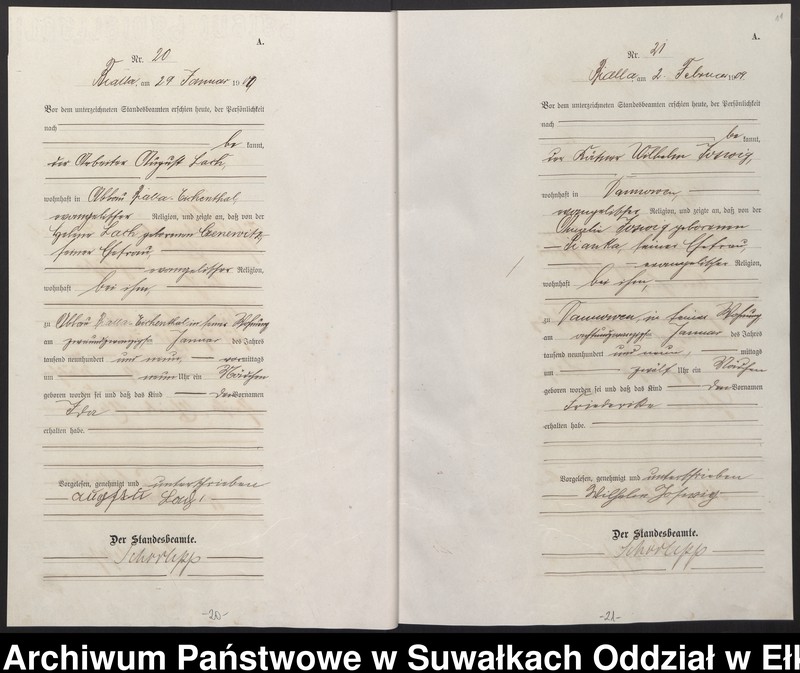 A.
Nr. 20
Bialla, am 29. Januar 1909
Vor dem unterzeichneten Standesbeamten erschien heute, der Persönlichkeit
nach
bekannt,
der Arbeiter August Lach,
wohnhaft in Abbau Bialla
evangelischer Religion, und zeigte an, daß von der
Lach geborenen
seiner Ehefrau,
evangelischer Religion,
wohnhaft bei ihm,
zu Abbau Bialla in seiner Wohnung
am Januar des Jahres
tausend neunhundert und neun, vormittags
um neun Uhr ein Mädchen
geboren worden sei und daß das Kind den Vornamen
Ida
erhalten habe.
Vorgelesen, genehmigt und unterschrieben
August Lach
Der Standesbeamte.
Schorlepp
-20-
A.
Nr. 21
Bialla, am 2. Februar 1909.
Vor dem unterzeichneten Standesbeamten erschien heute, der Persönlichkeit
nach
bekannt,
der Kätner Wilhelm Joswig,
wohnhaft in
evangelischer Religion, und zeigte an, daß von der
Amalie Joswig geborenen
seiner Ehefrau,
evangelischer Religion,
wohnhaft bei ihm,
zu in seiner Wohnung
am achtundzwanzigsten Januar des Jahres
tausend neunhundert und neun, mittags
um zwölf Uhr ein Mädchen
geboren worden sei und daß das Kind den Vornamen
Friederike
erhalten habe.
Vorgelesen, genehmigt und unterschrieben
Wilhelm Joswig
Der Standesbeamte.
Schorlepp
-21-
Archiwum Państwowe w Suwałkach Oddział w Ełk